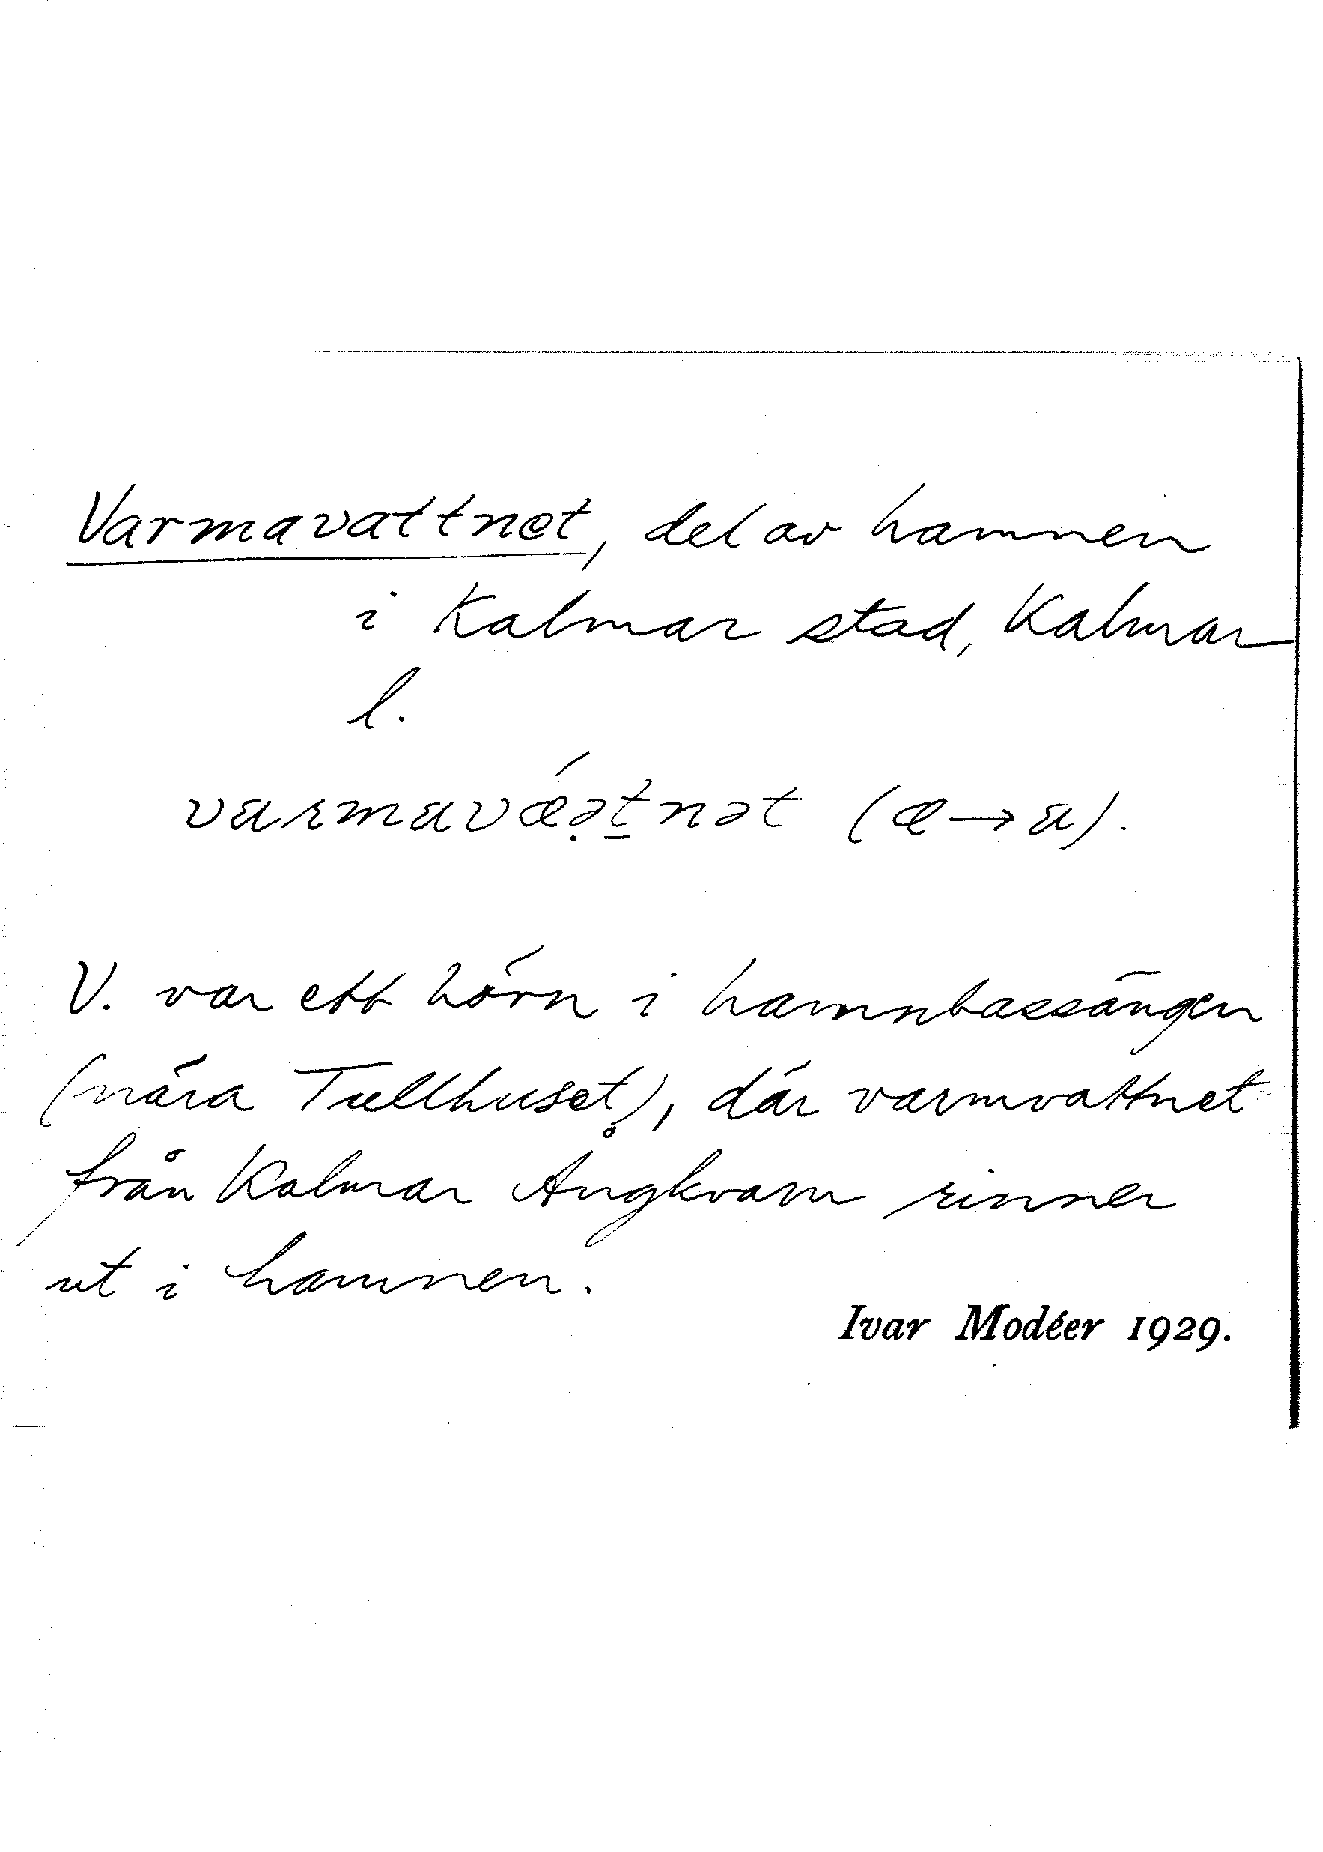 Varmavattnet, del av hamnen
i Kalmar stad, Kalmar
l.
varmavǽə̣t̲nət (æ→a).
V. var ett hörn i hamnbassängen
(nära Tullhuset), där varmvattnet
från Kalmar Ångkvarn rinner
ut i hamnen.
Ivar Modéer 1929.